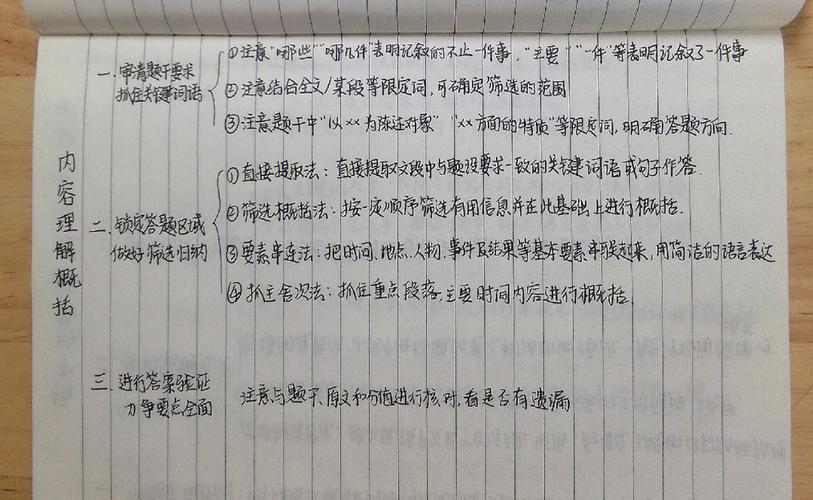 内容理解概括
一. 审清题干要求
抓住关键词语
①注意"哪些""哪几件"表明记叙的不止一件事,"主要""一件"等表明记叙了一件事
②注意结合全文/某段等限定词,可确定筛选的范围
③注意题干中"以××为陈述对象""××方面的特质"等限定词,明确答题方向.
二. 锁定答题区域
做好筛选归纳
①直接提取法:直接提取文段中与题设要求一致的关键词语或句子作答.
②筛选概括法:按一定顺序筛选有用信息并在此基础上进行概括.
③要素串连法:把时间、地点、人物、事件及结果等基本要素串联起来,用简洁的语言表达
④抓主舍次法:抓住重点段落,主要时间内容进行概括.
三. 进行答案验证
力争要点全面
注意与题干、原文和分值进行核对,看是否有遗漏